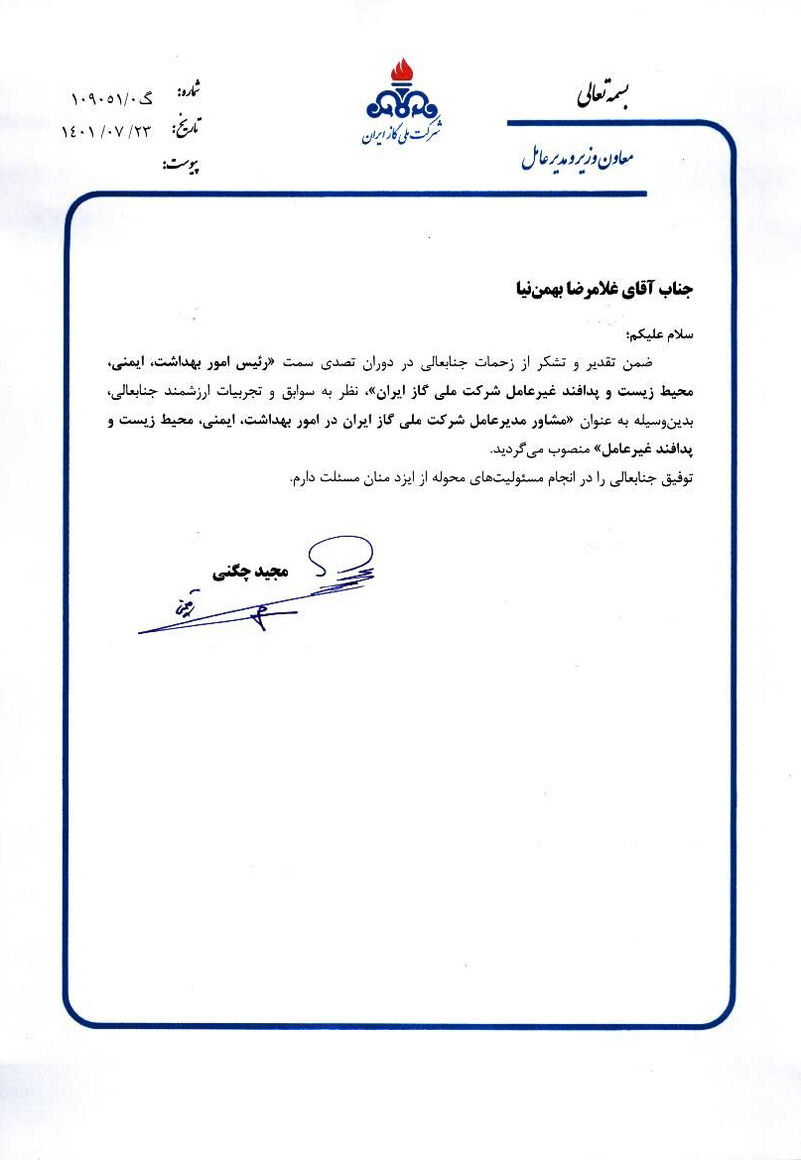 بسمه تعالی
معاون وزیر و مدیر عامل
شرکت ملی گاز ایران
شماره: گ۱۰۹۰۵۱/۰
تاریخ: ۱۴۰۱/۰۷/۲۳
پیوست:
جناب آقای غلامرضا بهمن‌نیا
سلام علیکم؛
ضمن تقدیر و تشکر از زحمات جنابعالی در دوران تصدی سمت «رئیس امور بهداشت، ایمنی،
محیط زیست و پدافند غیرعامل شرکت ملی گاز ایران»، نظر به سوابق و تجربیات ارزشمند جنابعالی،
بدین‌وسیله به عنوان «مشاور مدیرعامل شرکت ملی گاز ایران در امور بهداشت، ایمنی، محیط زیست و
پدافند غیرعامل» منصوب می‌گردید.
توفیق جنابعالی را در انجام مسئولیت‌های محوله از ایزد منان مسئلت دارم.
مجید چگنی